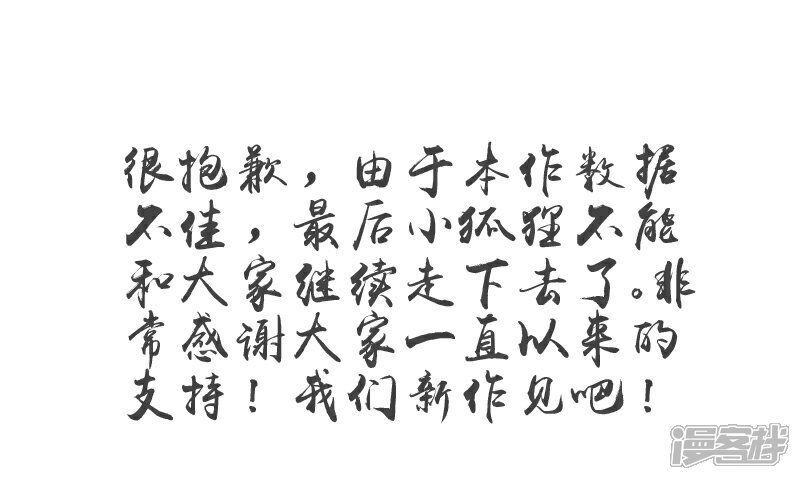 很抱歉，由于本作数据
不佳，最后小狐狸不能
和大家继续走下去了。非
常感谢大家一直以来的
支持！我们新作见吧！
漫客栈